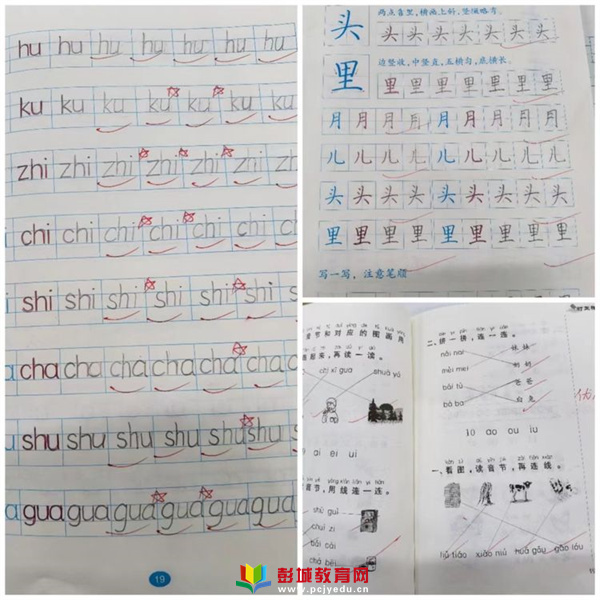 hu hu hu hu hu hu hu
ku ku ku ku ku ku ku
zhi zhi zhi zhi zhi zhi
chi chi chi chi chi chi
shi shi shi shi shi shi
cha cha cha cha cha cha
shu shu shu shu shu shu
gua gua gua gua gua gua
19
头 两点首里，横画上斜，竖撇略弯。
头 头 头 头 头 头 头
里 边竖收，中竖直，五横匀，底横长。
里 里 里 里 里 里 里
月 月 月 月 月 月 月 月 月
儿 儿 儿 儿 儿 儿 儿 儿 儿
头 头 头 头 头 头 头 头 头
里 里 里 里 里 里 里 里 里
写一写，注意笔顺
音节和对应的图画用
起来，再读一读。
chī xī gua
shuā yá
ai ei ui
音节，用线连一连。
shū guì
chuí zi
bái cài
二、拼一拼，连一连。
nǎi nai 妹妹
mèi mei 奶奶
bái tù 爸爸
bà ba 白兔
ao ou iu
一、看图，读音节，再连线。
彭城教育网
www.pcjyedu.cn